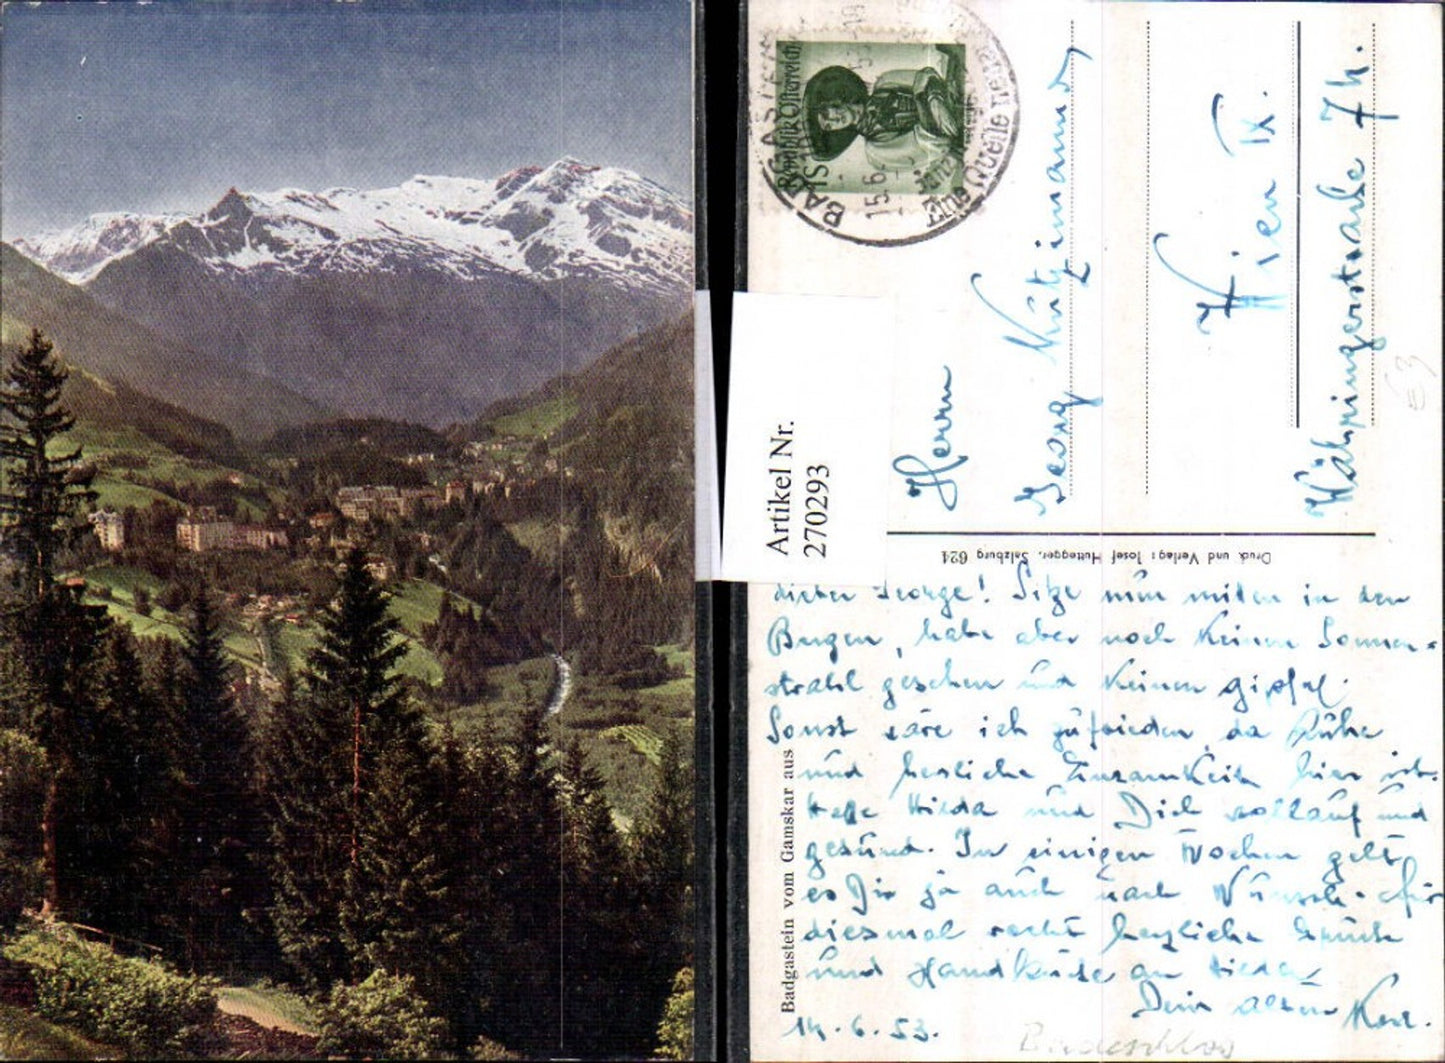 Republik Österreich
BADGASTEIN
15.6.
Artikel Nr.
2702​93
Herrn
Georg Kützimann
Wien IX.
Währingerstraße 7h.
Druck und Verlag: Josef Huttegger, Salzburg 624
Badgastein vom Gamskar aus
Lieber George! Sitze nun mitten in den
Bergen, habe aber noch keinen Sonnen-
strahl gesehen und keinen Gipfel.
Sonst wäre ich zufrieden, da Ruhe
und herrliche Einsamkeit hier ist.
Hoffe Hilda und Dich wohlauf und
gesund. In einigen Wochen geht
es Dir ja auch nach Wunsch. Für
diesmal recht herzliche Grüße
und Handküsse an Hilda
Dein alter Karl.
14.6.53.
Badeschloss